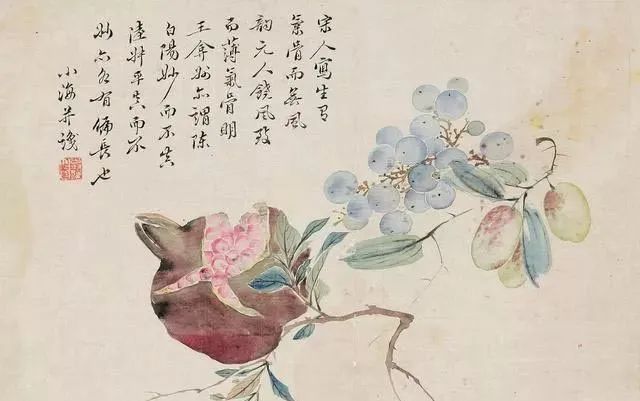 宋人寫生有
氣骨而無風
韵元人饒風致
而薄氣骨明
王弇州亦謂陳
白陽妙而不真
陸叔平真而不
妙亦各有偏長也
小海并識